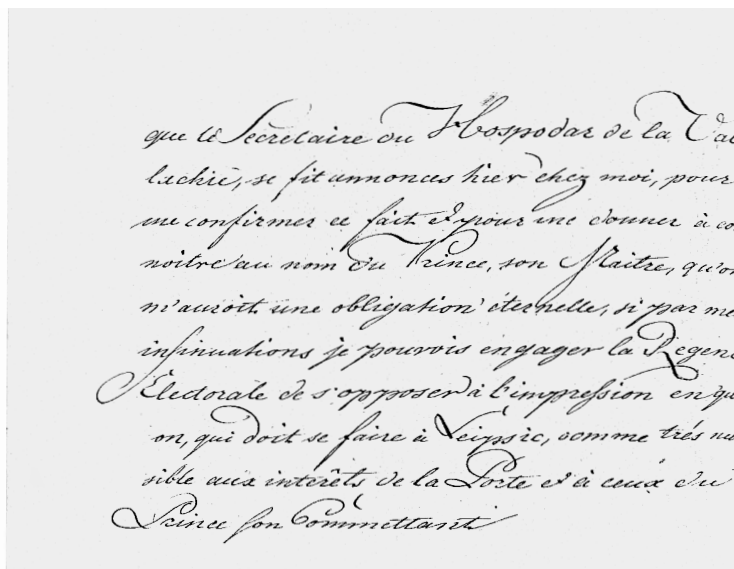 que le Secretaire du Hospodar de la Val
lachie, se fit annoncer hier chez moi, pour
me confirmer ce fait & pour me donner à co
noitre au nom du Prince, son Maitre, qu'on
m'auroit une obligation éternelle, si par me
insinuations je pouvois engager la Regenc
Électorale de s'opposer à l'impression en qu
on, qui doit se faire à Leipsic, comme trés nui
sible aux interêts de la Porte et à ceux du
Prince son Commettant